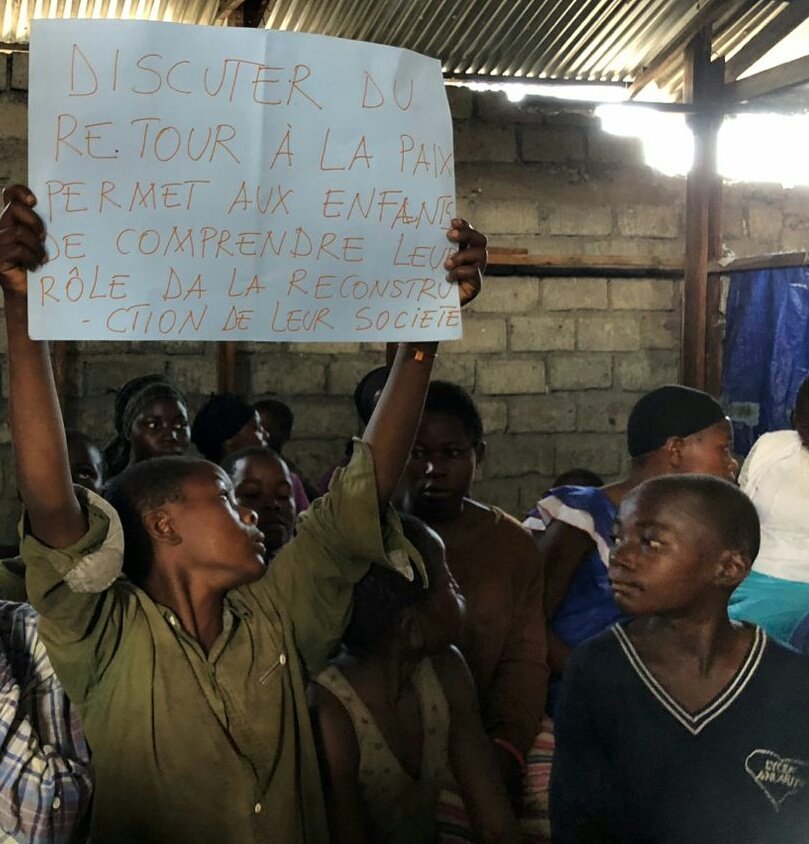 DISCUTER DU
RETOUR À LA PAIX
PERMET AUX ENFANTS
DE COMPRENDRE LEUR
RÔLE DA LA RECONSTRU
- CTION DE LEUR SOCIETE
LYCEE